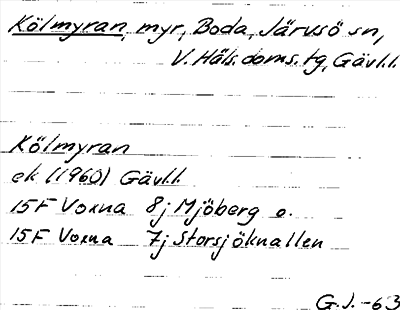 Kölmyran, myr, Boda, Järvsö sn,
V. Häls. doms. tg, Gävl.l.
Kölmyran
ek (1960) Gävl.l.
15F Voxna 8j Mjöberg o.
15F Voxna 7j Storsjöknallen
G.J. -63